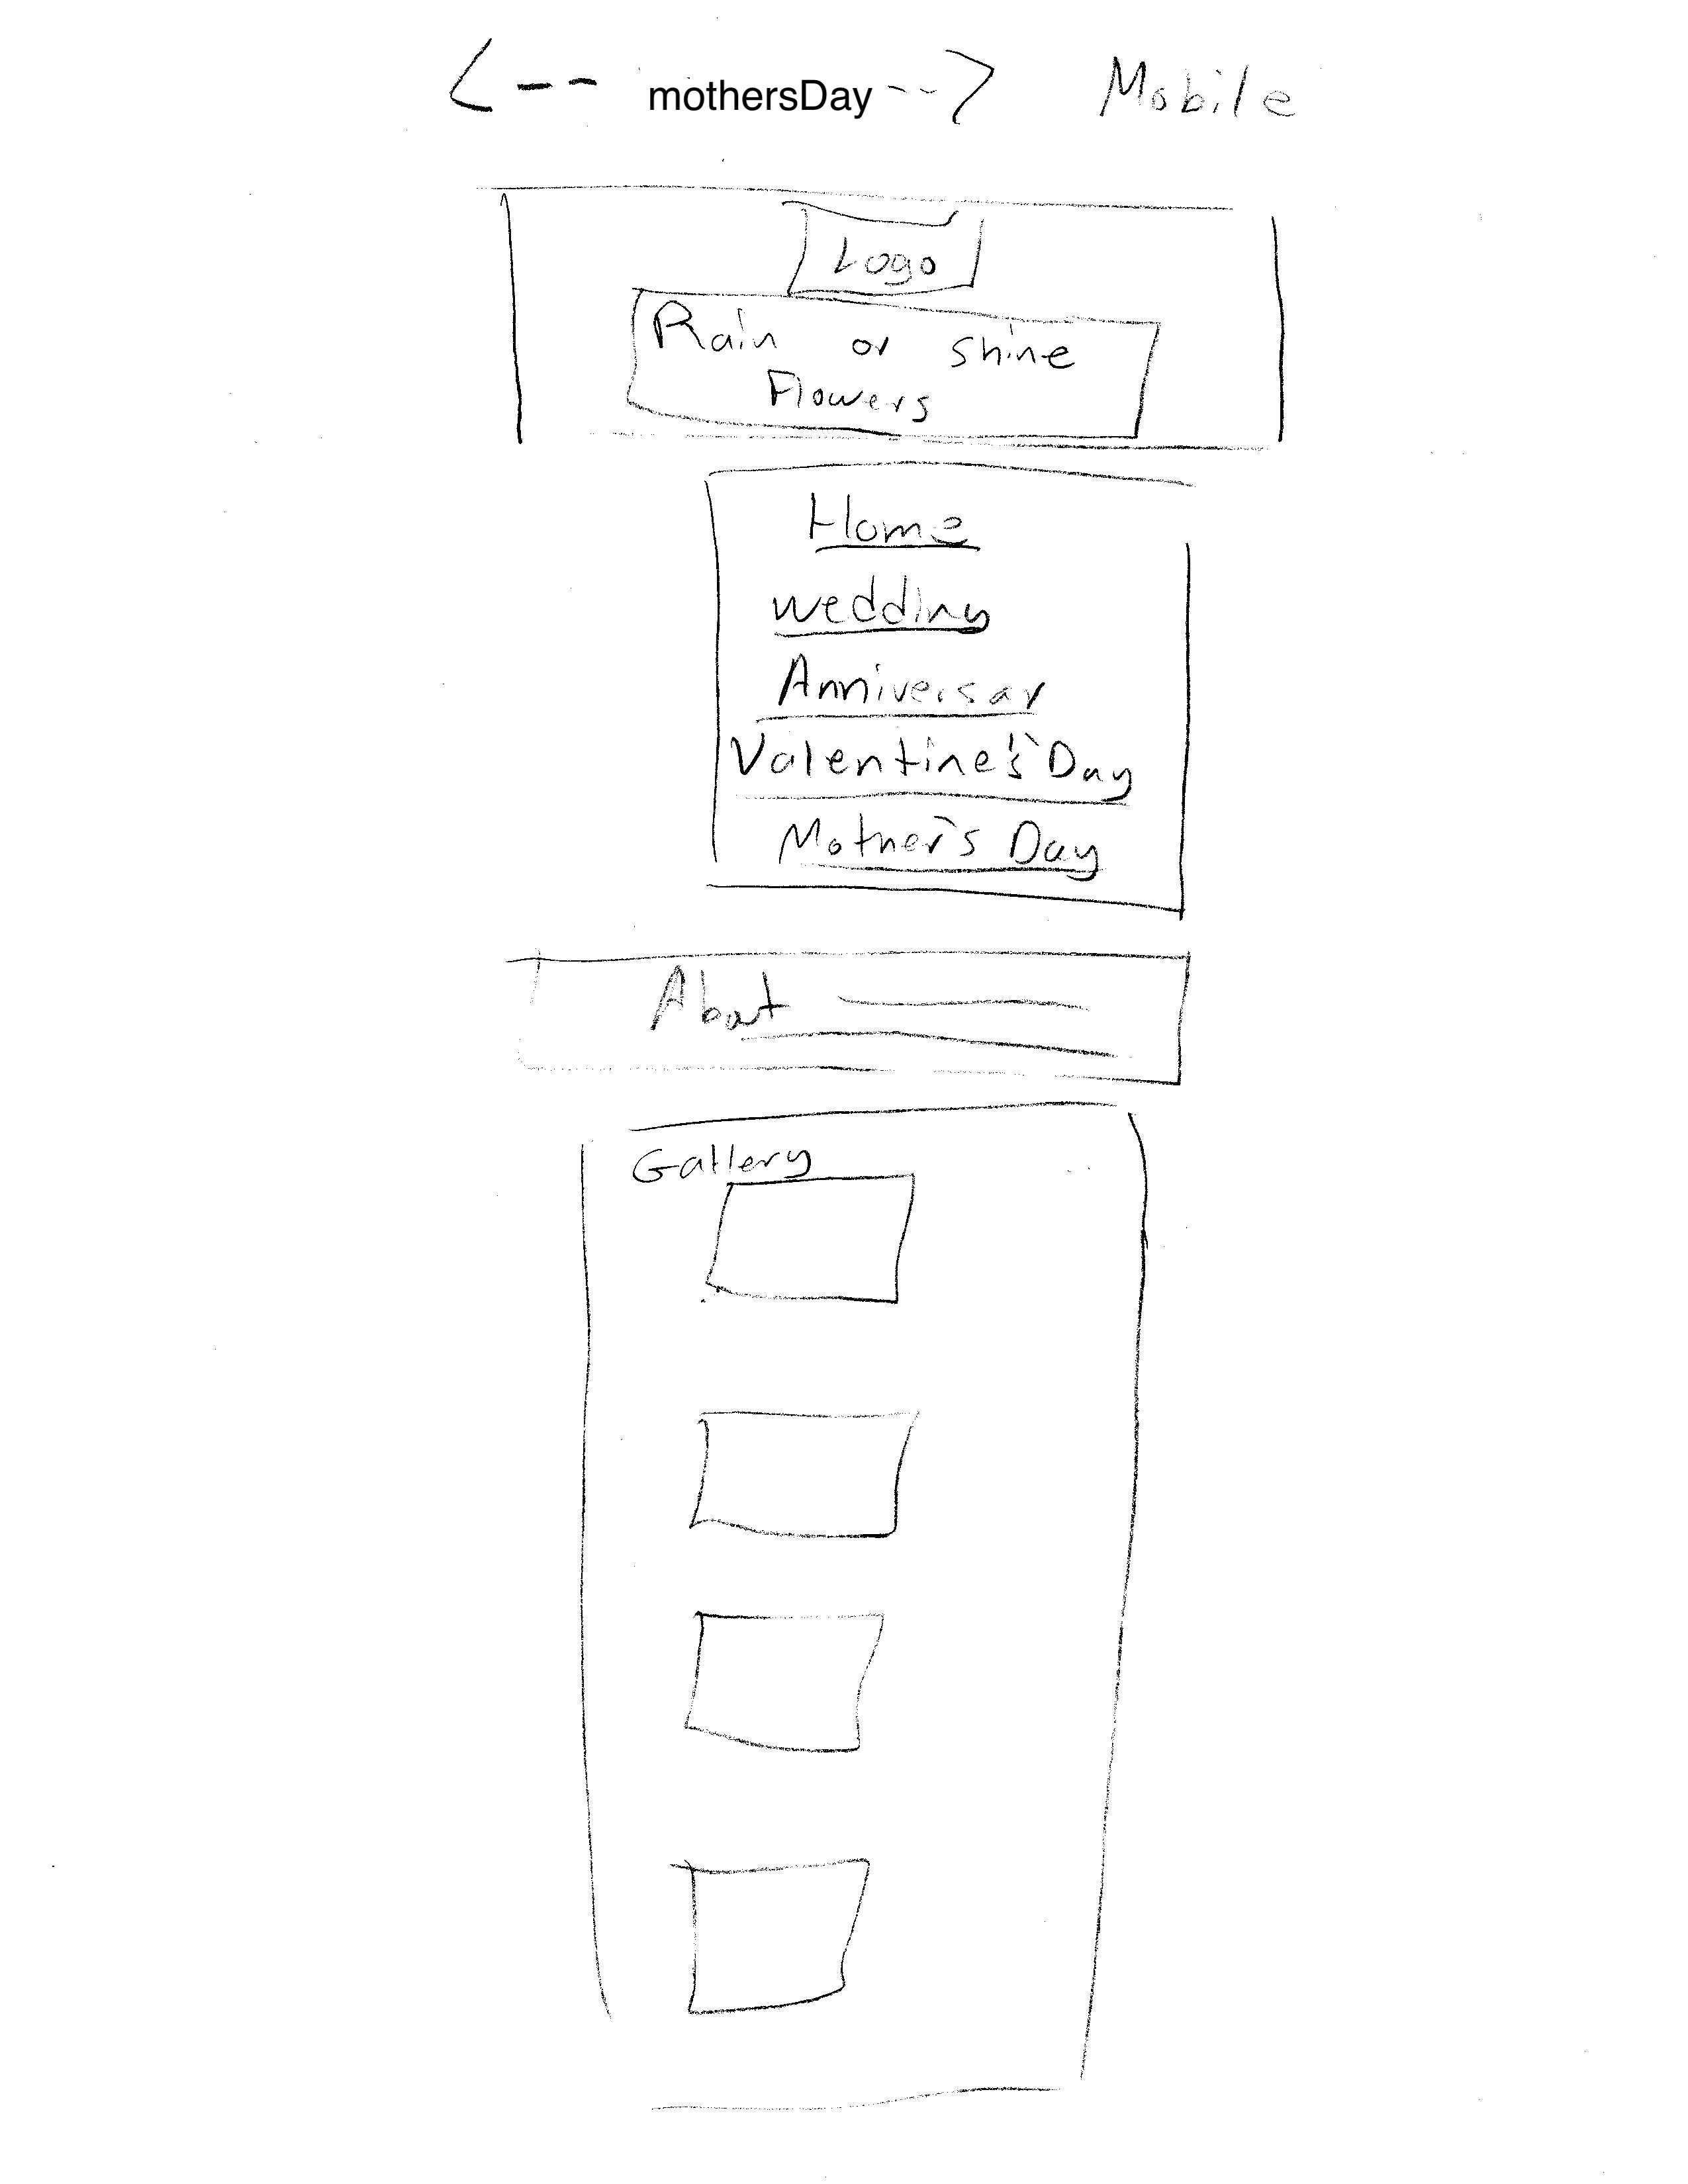 <-- mothersDay --> Mobile
Logo
Rain or shine
Flowers
Home
wedding
Anniversar
Valentine's Day
Mother's Day
About
Gallery